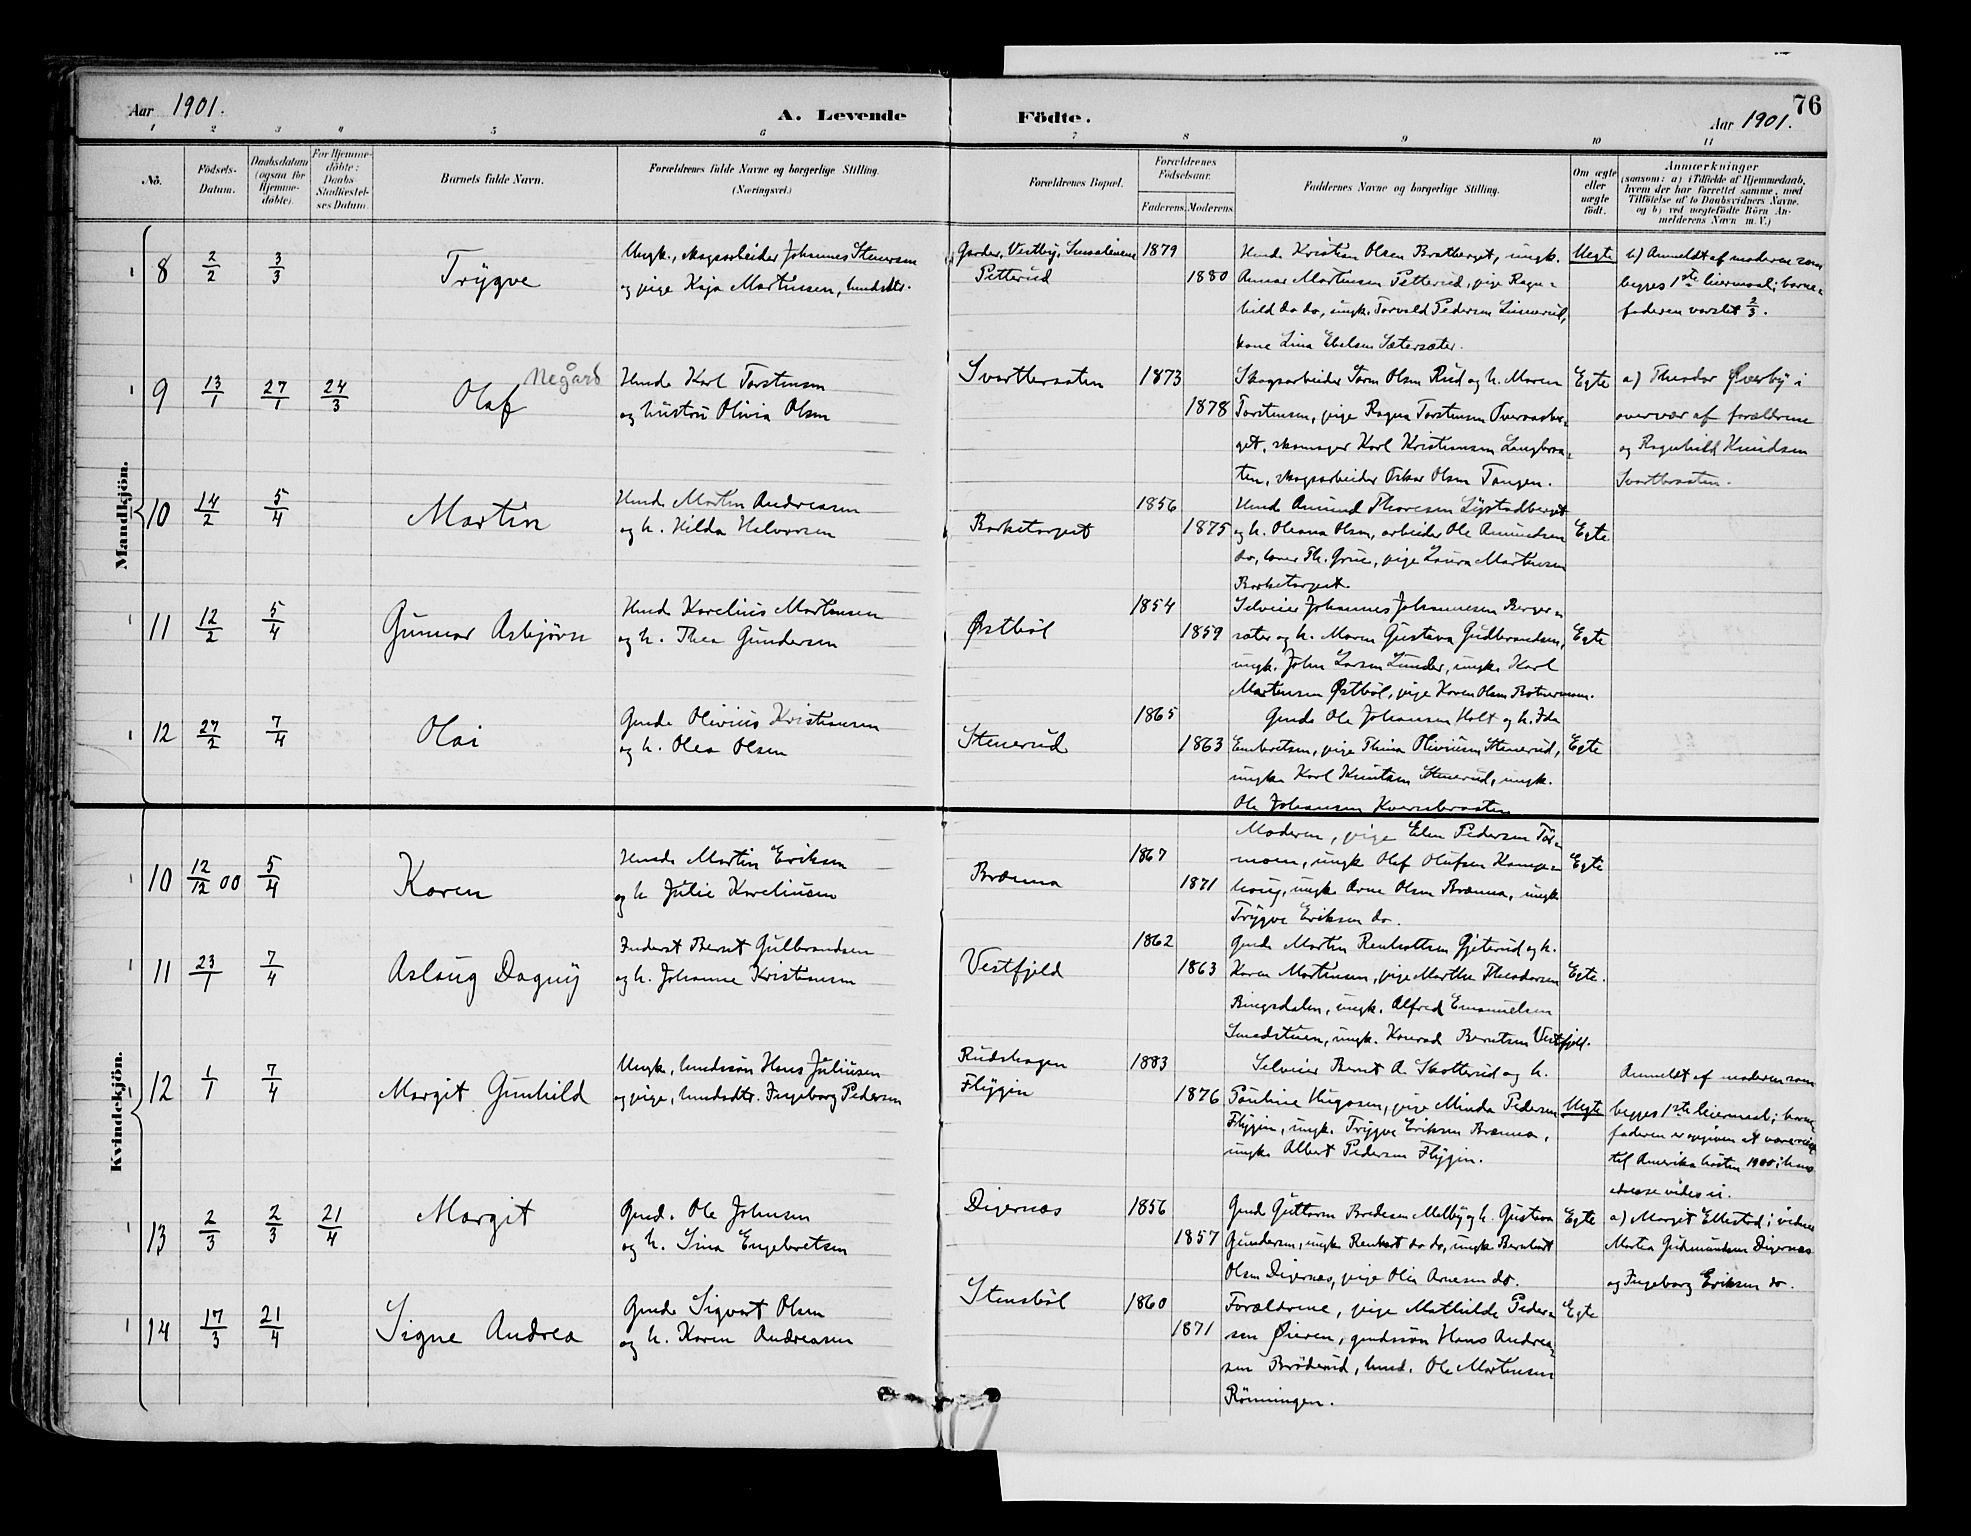 Aar 1901.
A. Levende Födte.
76
Aar 1901.
1 2 3 4 5 6 7 8 9 10 11
No.
Födsels-Datum.
Daabsdatum (ogsaa for Hjemme-döbte).
For Hjemme-döbte: Daabs Stadfæstel-ses Datum.
Barnets fulde Navn.
Forældrenes fulde Navne og borgerlige Stilling. (Næringsvei.)
Forældrenes Bopæl.
Forældrenes Födselsaar.
Faderens. Moderens.
Faddernes Navne og borgerlige Stilling.
Om ægte eller uægte födt.
Anmærkninger
(saasom: a) i Tilfælde af Hjemmedaab, hvem der har forrettet samme, med Tilföielse af to Daabsvidners Navne, og b) ved uægtefödte Börn An-melderens Navn m. V.)
Mandkjön.
8 2/2 3/3 Trÿgve
Ungk., skogsarbeider Johannes Stenersen
og pige Kaja Martinsen, husmdtr.
Petterud
1879
1880
Husmd. Kristian Olsen Bratberget, ungk.
Gunnar Martinsen Petterud, pige Ragn-
hild do do, ungk. Torvald Pedersen Linnerud,
kone Lina Ebelsen Sætersæter.
Uegte
b) Anmeldt af moderen som
begges 1ste leiermaal; barne-
faderen varslet 2/3.
9 13/1 27/1 24/3 Olaf Negård
Husmd. Karl Torstensen
og hustru Olivia Olsen
Svartbraaten
1873
1878
Skogsarbeider Olsen Rud og h. Maren
Torstensen, pige Ragna Torstensen Overaasber-
get, skomager Karl Kristiansen Langbraa-
ten, skogsarbeider Oskar Olsen Tangen.
Egte
a) Theodor Øverby i
overvær af forældrene
og Ragnhild Knudsen
Svartbraaten.
10 14/2 5/4 Martin
Husmd. Martin Andreasen
og h. Hilda Halvorsen
Barketorpet
1856
1875
Husmd. Amund Thoresen Lystadberget
og h. Oleana Olsen, arbeider Ole Amundsen
do, Th. Grue, pige Laura Martinsen
Barketorpet.
Egte
11 12/2 5/4 Gunnar Asbjörn
Husmd. Karelius Martinsen
og h. Thea Gundersen
Østböl
1854
1859
Selveier Johannes Johannesen Berger-
sæter og h. Maren Gustava Gudbrandsen,
ungk. John Larsen Lunder, ungk. Karl
Martinsen Østböl, pige Karen Olsen
Egte
12 27/2 7/4 Olai
Gmd. Olivius Kristiansen
og h. Olea Olsen
Stenerud
1865
1863
Gmd. Ole Johansen Holt og h. Ida
Embretsen, pige Thina Oliviusen Stenerud,
ungk. Karl Knutsen Stenerud, ungk.
Ole Johansen Kvernbraaten
Egte
Kvindekjön.
10 12/12 00 5/4 Karen
Husmd. Martin Eriksen
og h. Julie Kareliusen
Brænna
1867
1871
Moderen, pige Elen Pedersen Tör-
moen, ungk. Olaf Olufsen Kampe-
haug, ungk. Arne Olsen Brænna, ungk.
Trÿgve Eriksen do.
Egte
11 23/1 7/4 Aslaug Dagnÿ
Inderst Bernt Gulbrandsen
og h. Johanne Kristiansen
Vestfjeld
1862
1863
Gmd. Martin Gjeterud og h.
Karen Martinsen, pige Marthe Theodorsen
Bingsdalen, ungk. Alfred Emanuelsen
Smedstuen, ungk. Konrad Berntsen Vestfjeld.
Egte.
12 1/1 7/4 Margit Gunhild
Ungk., husmdssön Hans Juliusen
og pige, husmdsdtr. Ingeborg Pedersen
Rudshagen
Flÿgin
1883
1876
Selveier Bernt A. Skotterud og h.
Pauline Hugosen, pige Minda Pedersen
Flÿgin, ungk. Trÿgve Eriksen Brænna,
ungk. Albert Pedersen Flÿgin.
Uegte
Anmeldt af moderen som
begges 1ste leiermaal; barne-
faderen er opgiven at være reist
til Amerika hösten 1900; hans
adresse vides ei.
13 2/3 2/3 21/4 Margit
Gmd. Ole Johnsen
og h. Sina Engebretsen
Digernæs
1856
1857
Gmd. Guttorm Bredesen Melby og h. Gustava
Gundersen, ungk. Renhart do do, ungk. Bernhart
Olsen Digernæs, pige Olia Arnesen do.
Egte
a) Margit Ellestad; vidner
Martea Gudmundsen Digernæs
og Ingeborg Eriksen do.
14 17/3 21/4 Signe Andrea
Gmd. Sigvart Olsen
og h. Karen Andreasen
Stensböl
1860
1871
Forældrene, pige Mathilde Peder-
sen Øieren, gmdssön Hans Andrea-
sen Bröderud, husmd. Ole Martinsen
Rönningen.
Egte